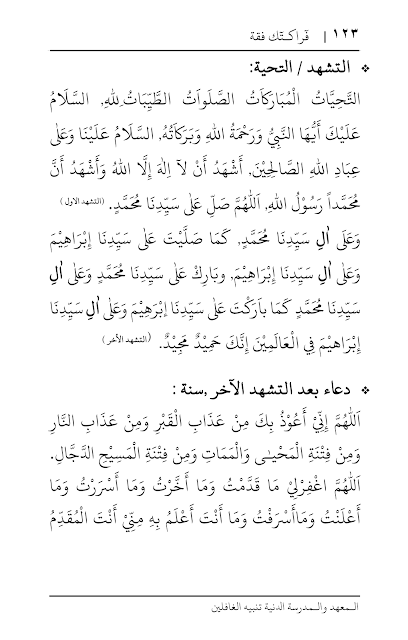 ١٢٣ | فراكتك فقة
❖ التشهد / التحية:
التَّحِيَّاتُ الْمُبَارَكَاتُ الصَّلَوَاتُ الطَّيِّبَاتُ لِلهِ, السَّلَامُ
عَلَيْكَ أَيُّهَا النَّبِيُّ وَرَحْمَةُ اللهِ وَبَرَكَاتُهُ, السَّلَامُ عَلَيْنَا وَعَلَى
عِبَادِ اللهِ الصَّالِحِيْنَ, أَشْهَدُ أَنْ لَآ اِلٰهَ إِلَّا اللهُ وَأَشْهَدُ أَنَّ
مُحَمَّداً رَسُوْلُ اللهِ, اَللَّهُمَّ صَلِّ عَلَى سَيِّدِنَا مُحَمَّدٍ. (التشهد الاول)
وَعَلَى اٰلِ سَيِّدِنَا مُحَمَّدٍ, كَمَا صَلَّيْتَ عَلَى سَيِّدِنَا إِبْرَاهِيْمَ
وَعَلَى اٰلِ سَيِّدِنَا إِبْرَاهِيْمَ, وَبَارِكْ عَلَى سَيِّدِنَا مُحَمَّدٍ وَعَلَى اٰلِ
سَيِّدِنَا مُحَمَّدٍ كَمَا بَارَكْتَ عَلَى سَيِّدِنَا اِبْرٰهِيْمَ وَعَلَى اٰلِ سَيِّدِنَا
إِبْرَاهِيْمَ فِي الْعَالَمِيْنَ إِنَّكَ حَمِيْدٌ مَجِيْدٌ. (التشهد الأخر)
❖ دعاء بعد التشهد الآخر ,سنة :
اَللَّهُمَّ إِنِّيْ أَعُوْذُ بِكَ مِنْ عَذَابِ الْقَبْرِ وَمِنْ عَذَابِ النَّارِ
وَمِنْ فِتْنَةِ الْمَحْيَى وَالْمَمَاتِ وَمِنْ فِتْنَةِ الْمَسِيْحِ الدَّجَّالِ.
اَللَّهُمَّ اغْفِرْلِيْ مَا قَدَّمْتُ وَمَا أَخَّرْتُ وَمَا أَسْرَرْتُ وَمَا
أَعْلَنْتُ وَمَاأَسْرَفْتُ وَمَا أَنْتَ أَعْلَمُ بِهِ مِنِّيْ أَنْتَ الْمُقَدِّمُ
المعهد والمدرسة الدنية تنبيه الغافلين